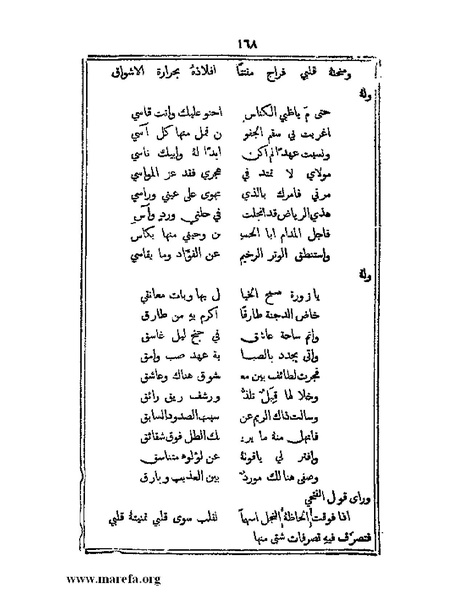 ١٦٨
ومنحتهُ قلبي فراح مفتتًا افلاذهُ بحرارة الاشواق
ولهُ
حتى مَ ياظبي الكناس احنو عليك وانت قاسي
اغريت بي سقم الجفو ن فمل منها كل آسي
ونسيت عهدًا لم اكن ابدًا لهُ وابيك ناسي
مولاي لا تمتد في هجري فقد عز المواسي
مرني فامرك بالذي تهوى على عيني وراسي
هذي الرياض قد انجلت في حلتي وردٍ وآس
فاجل المدام ابا الحسين وحيني منها بكاس
واستنطق الوتر الرخيم عن الفؤاد وما يقاسي
ولهُ
يا زورة سمح الخيا ل بها وبات معانقي
خاض الدجنة طارقًا أكرم بهِ من طارق
وأتم ساحة عاشق في جنح ليل غاسق
وافى يجدد بالصبا بة عهد صب وامق
فجرت لطائف بين معشوق هناك وعاشق
وخلا لها قبل تلذ ورشف ريق رائق
وسالت ذاك الريم عن سبب الصدود السابق
فانهل منهُ ما يريك الطل فوق شقائق
وافتر لي ياقوتهُ عن لؤلوه متناسق
وصفى هنالك موردٌ بين العذيب وبارق
وراى قول الفتحي
اذا فوقت ألحاظهُ النجل اسهمًا لقلب سوى قلبي تمنيتهُ قلبي
فتصرَّف فيهِ تصرفات شتى منها
www.marefa.org